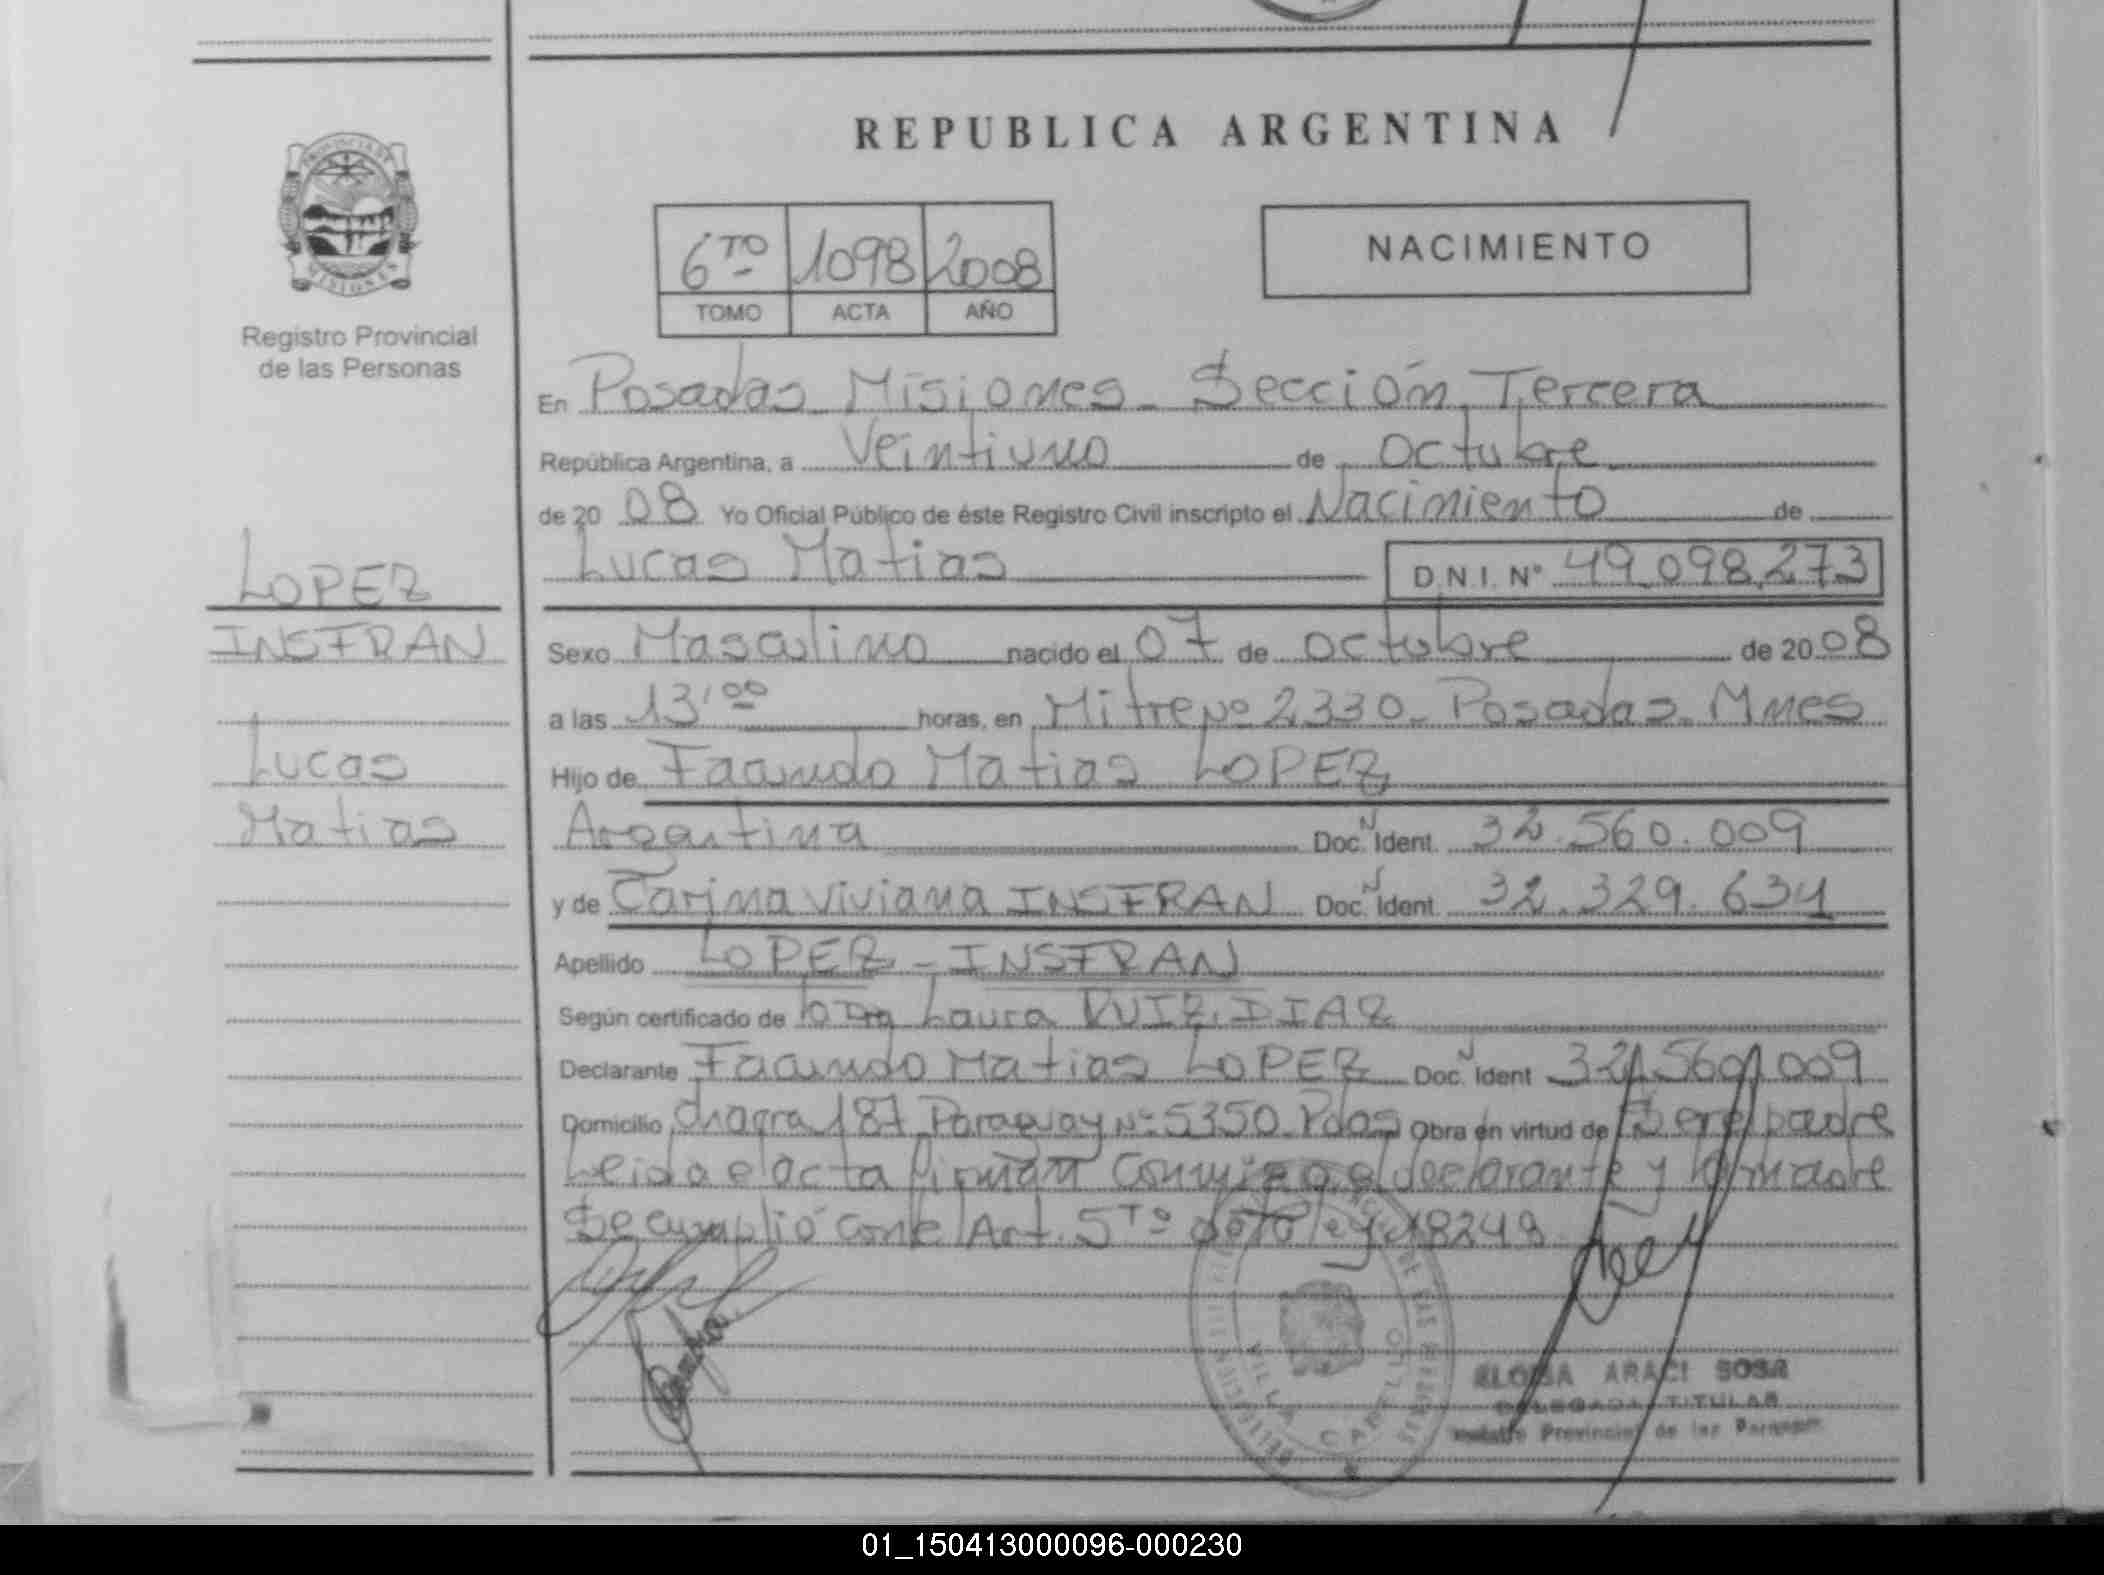 REPUBLICA ARGENTINA
PROVINCIA DE
MISIONES
Registro Provincial
de las Personas
6TO 1098 2008
TOMO ACTA AÑO
NACIMIENTO
En Posadas Misiones - Sección Tercera
República Argentina, a Veintiuno de octubre
de 2008 Yo Oficial Público de éste Registro Civil inscripto el Nacimiento de
Lucas Matias D.N.I. Nº 49.098.273
LOPEZ
INSFRAN
Lucas
Matias
Sexo Masculino nacido el 07 de octubre de 2008
a las 13'00 horas, en Mitre Nº 2330 - Posadas - Mnes
Hijo de Facundo Matias LOPEZ
Argentina Doc. N Ident. 32.560.009
y de Carina Viviana INSFRAN Doc. N Ident. 32.329.634
Apellido LOPEZ - INSFRAN
Según certificado de la Dra Laura RUIZ DIAZ
Declarante Facundo Matias LOPEZ Doc. N Ident 32.560.009
Domicilio Chacra 187 Paraguay Nº 5350 Pdas Obra en virtud de Ser el padre
Leida el acta firman Conmigo el declarante y la madre
Se cumplió con el Art. 5to de la ley 18248
VILLA CABELLO
ELOISA ARACI SOSA
DELEGADA TITULAR
Provincial de las Personas
01_150413000096-000230